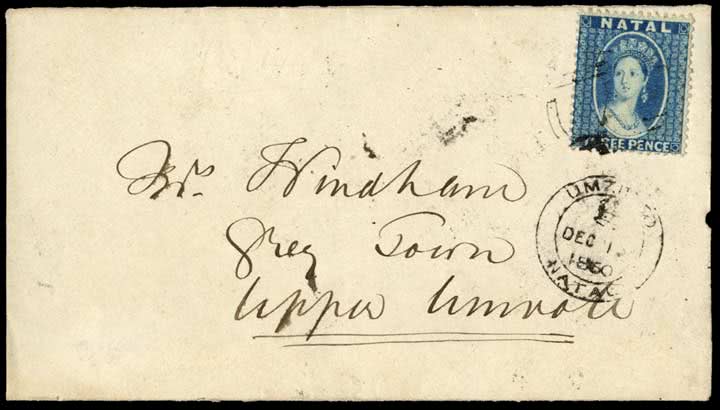 NATAL
EE PENCE
Mrs. Windham
Grey Town
Upper Umvoti
DEC 1
1860
NATAL